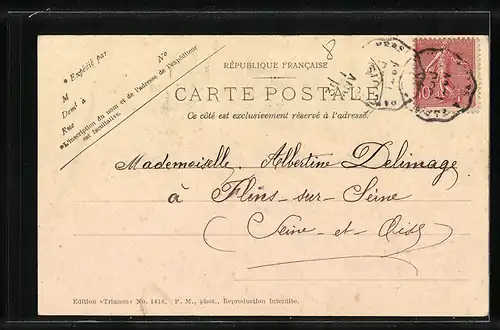 « Expédié par
No
M
Demt à
Rue
« L'inscription du nom et de l'adresse de l'expéditeur
est facultative.
8
RÉPUBLIQUE FRANÇAISE
CARTE POSTALE
Ce côté est exclusivement réservé à l'adresse.
10
Mademoiselle Albertine Delimage
à Flins-sur-Seine
(Seine-et-Oise)
Edition «Trianon» No. 1418. P. M., phot., Reproduction interdite.